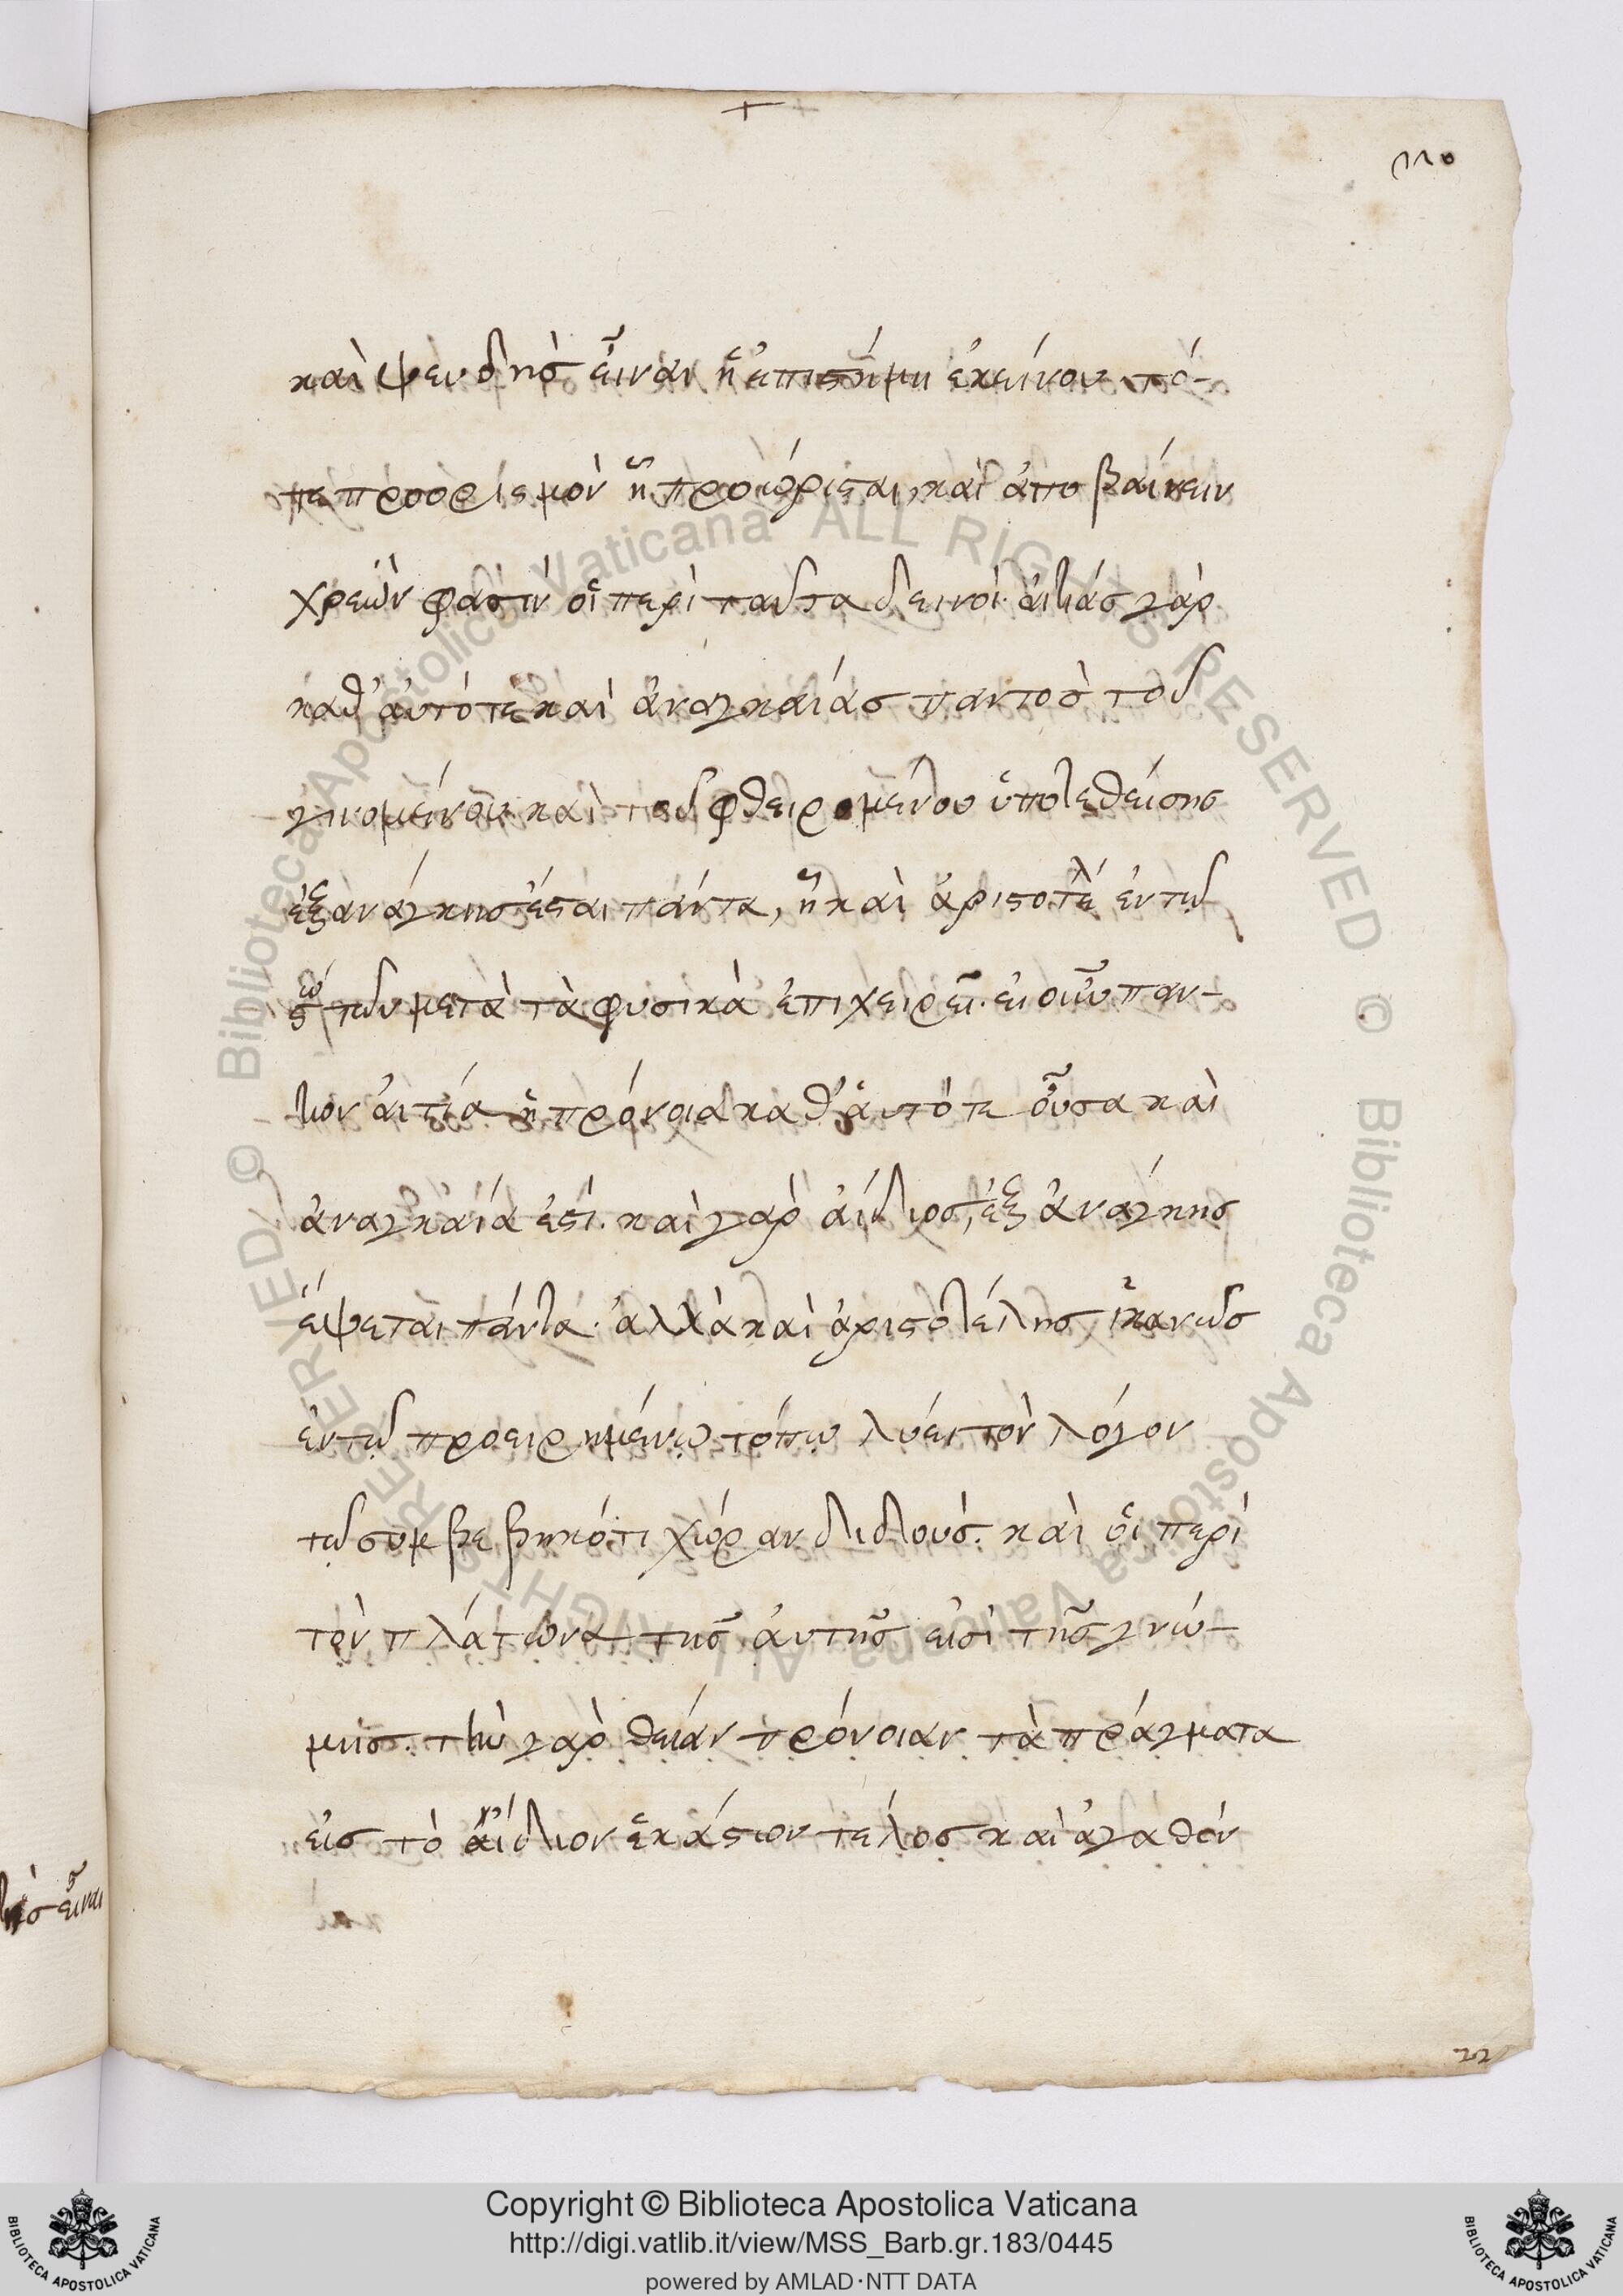 220
καὶ ψευδὴς εἶναι ἡ ἐπιστήμη ἐκείνου. τό-
τε προορισμὸν ἢ προώρισται, καὶ ἀποβαίνειν
χρεὼν φασὶν οἱ περὶ ταῦτα δεινοί. αἰτίας γὰρ
καθ' αὑτό τε καὶ ἀναγκαίας παντὸς τοῦ
γινομένου καὶ τοῦ φθειρομένου ὑποτεθείσης
ἐξ ἀνάγκης ἔσται πάντα, ᾗ καὶ ἀριστοτέλ ἐν τῷ
ϛῳ τῶν μετὰ τὰ φυσικὰ ἐπιχειρεῖ. εἰ οὖν παν-
των αἰτία ἡ πρόνοια καθ' αὑτό τε οὖσα καὶ
ἀναγκαία ἐστί. καὶ γὰρ ἀΐδιος, ἐξ ἀνάγκης
ἕψεται πάντα. ἀλλὰ καὶ ἀριστοτέλης ἱκανῶς
ἐν τῷ προειρημένῳ τόπῳ λύει τὸν λόγον
τῷ συμβεβηκότι χώραν διδούς. καὶ οἱ περὶ
τὸν πλάτωνα τῆς αὐτῆς εἰσὶ τῆς γνώ-
μης. τὴν γὰρ θείαν πρόνοιαν τὰ πράγματα
εἰς τὸ ἀΐδιον ἑκάστων τέλος καὶ ἀγαθὸν
22
Copyright © Biblioteca Apostolica Vaticana
http://digi.vatlib.it/view/MSS_Barb.gr.183/0445
powered by AMLAD·NTT DATA
BIBLIOTECA APOSTOLICA VATICANA
BIBLIOTECA APOSTOLICA VATICANA